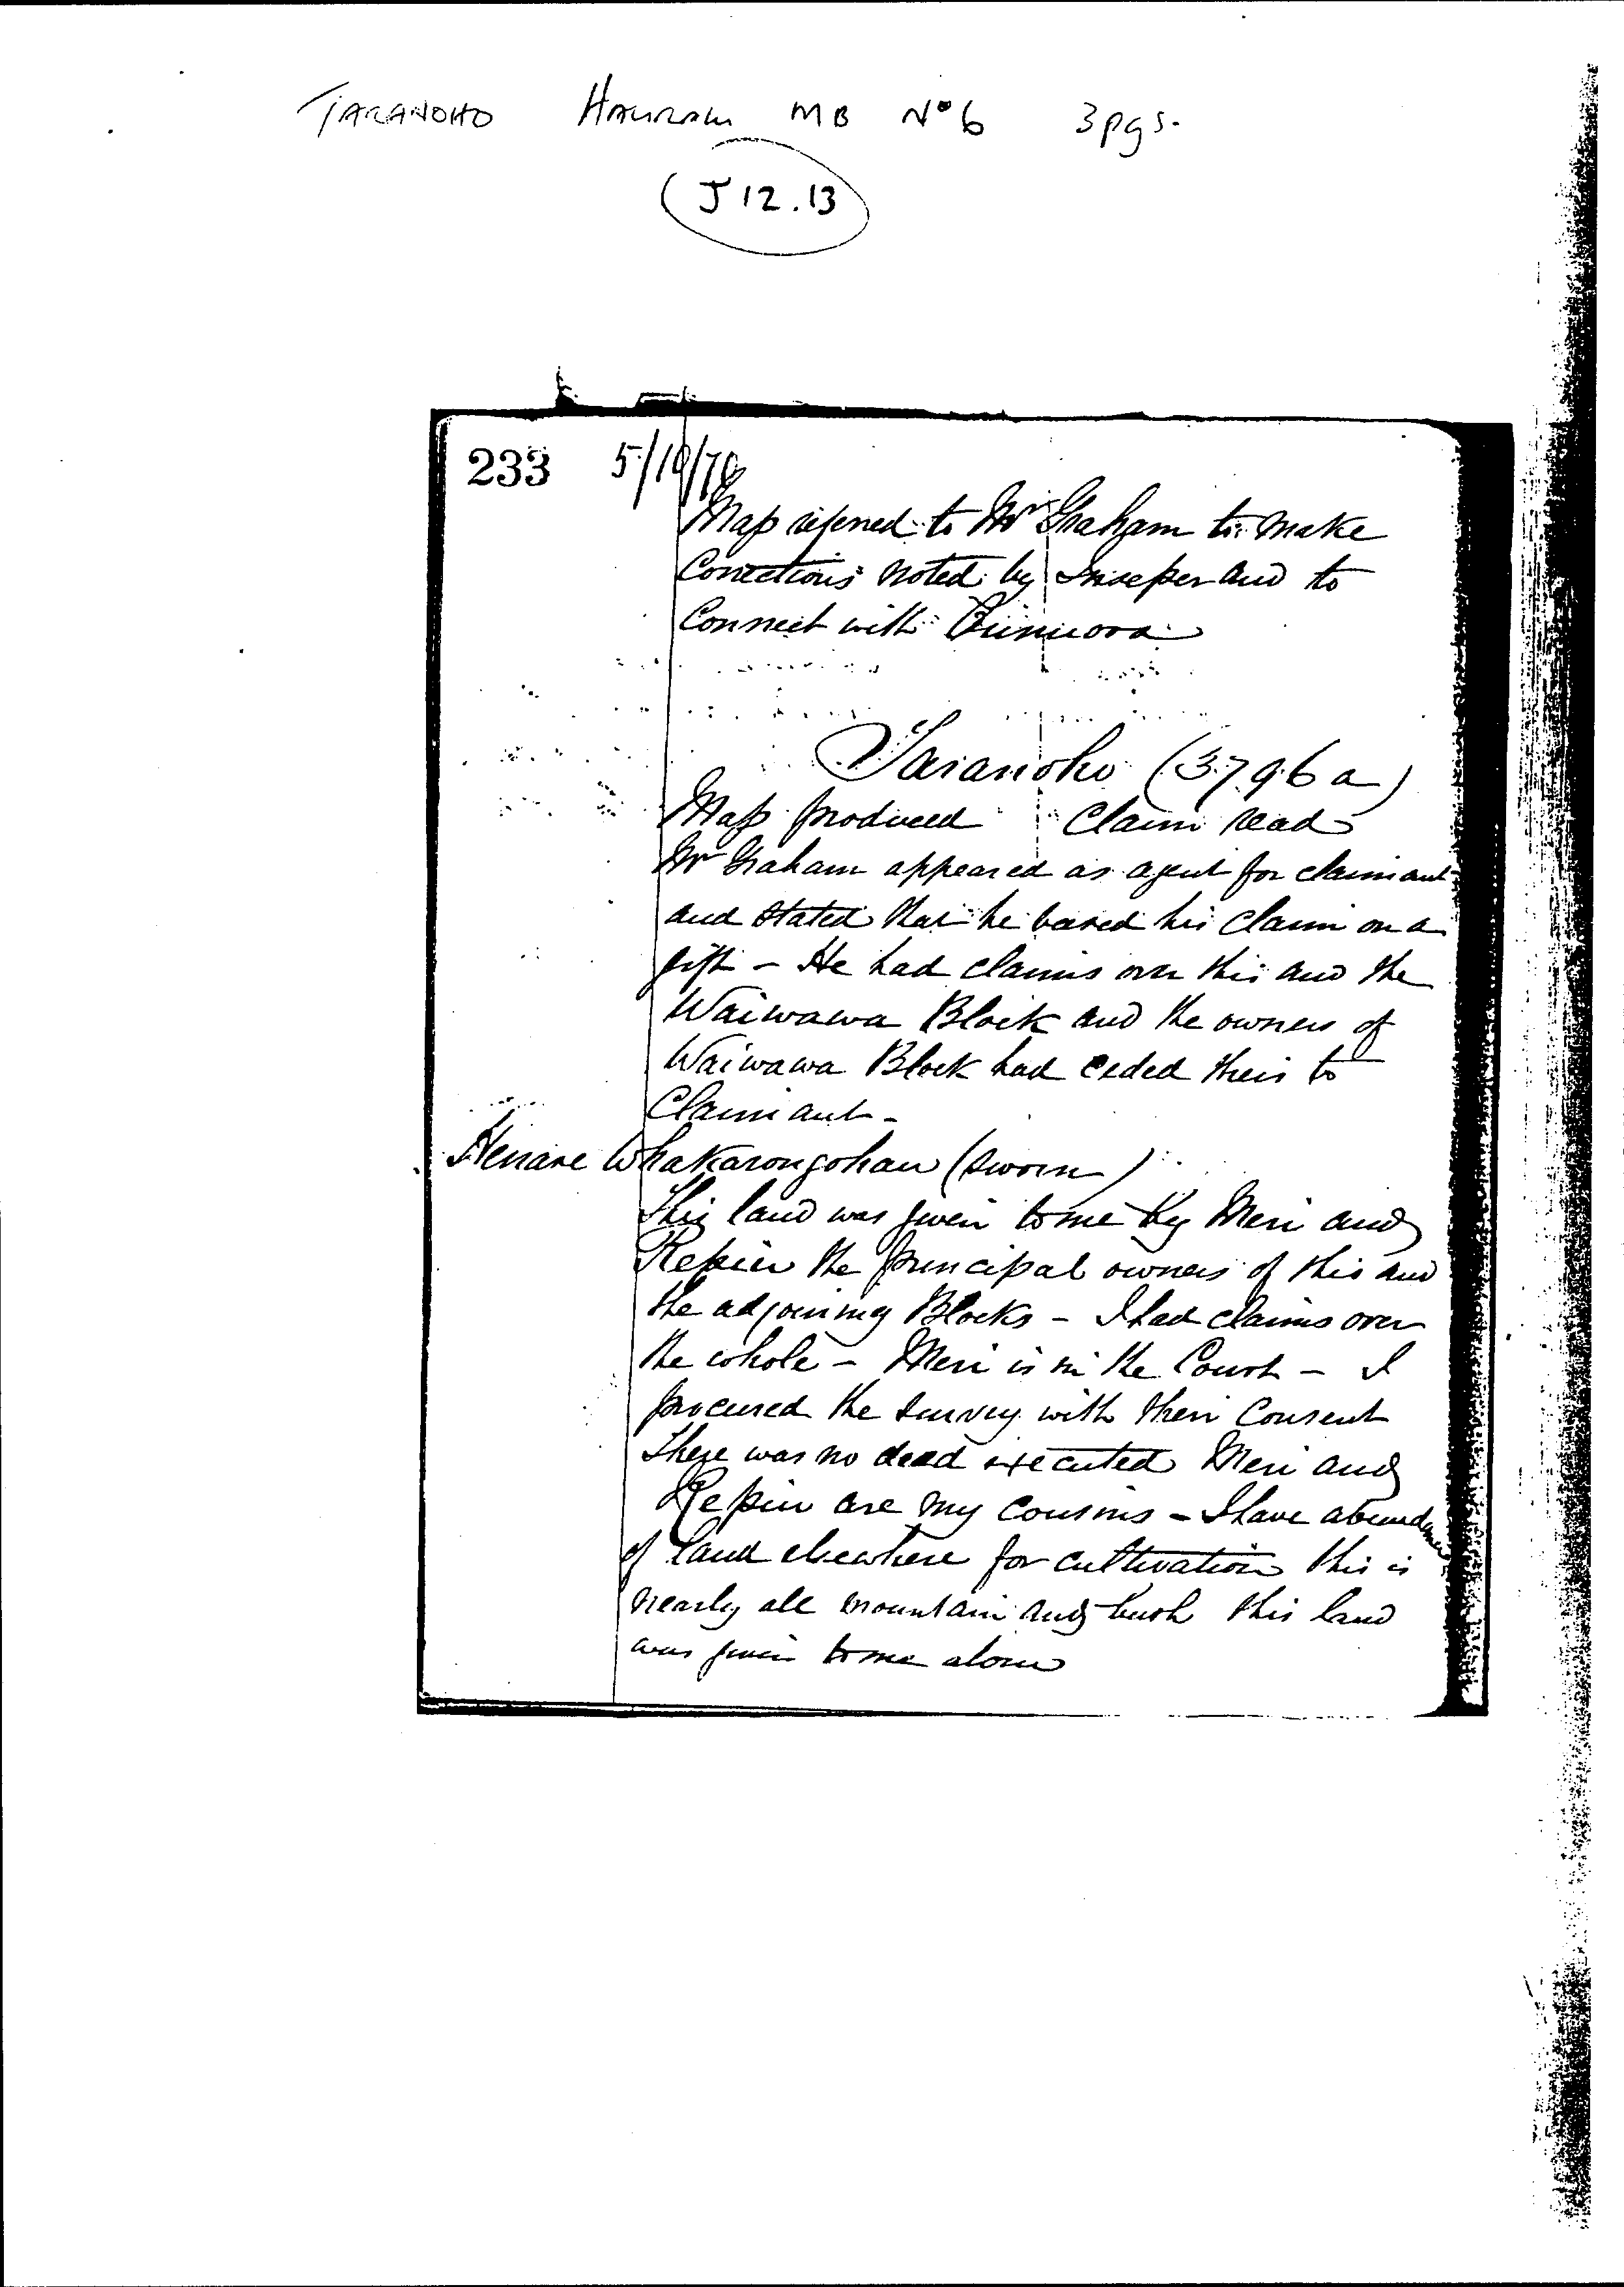 TARANOHO HAURAKI MB Nº 6 3pgs.
J 12.13
233 5/10/70
Map referred to Mr Graham to make
Corrections noted by and to
Connect with
Taranoho (3796a)
Map produced Claim read
Mr Graham appeared as agent for claimant
and stated that he based his claim on a
gift - He had claims over this and the
Waiwawa Block and the owners of
Waiwawa Block had ceded their to
Claimant -
Henare Whakarongohau (sworn)
This land was given to me by Meri and
the principal owners of this and
the adjoining Blocks - I had claims over
the whole - Meri is in the Court - I
procured the survey with their Consent
There was no deed executed Meri and
are my cousins - I have abundance
of land elsewhere for cultivation this is
nearly all mountain and bush this land
was given to me alone